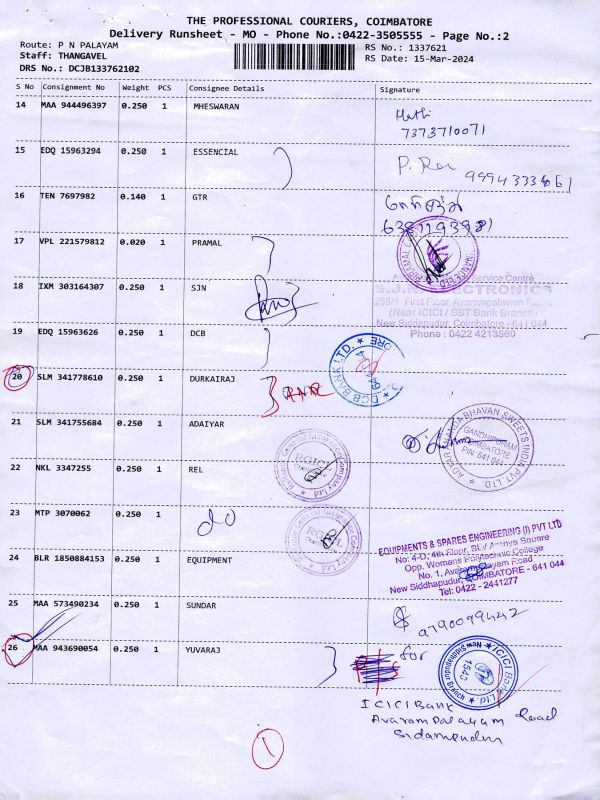 THE PROFESSIONAL COURIERS, COIMBATORE
Delivery Runsheet - MO - Phone No.:0422-3505555 - Page No.:2
Route: P N PALAYAM
Staff: THANGAVEL
DRS No.: DCJB133762102
RS No.: 1337621
RS Date: 15-Mar-2024
S No Consignment No Weight PCS Consignee Details Signature
14 MAA 944496397 0.250 1 MHESWARAN
7373710071
15 EDQ 15963294 0.250 1 ESSENCIAL
16 TEN 7697982 0.140 1 GTR
17 VPL 221579812 0.020 1 PRAMAL
18 IXM 303164307 0.250 1 SJN
Service Centre
S.J.N. ELECTRONICS
First Floor, Avarampalayam
(Near ICICI / SBT Bank Branch)
New Siddapudur, Coimbatore - 641 044
Phone : 0422 4213560
19 EDQ 15963626 0.250 1 DCB
DCB BANK LTD.
20 SLM 341778610 0.250 1 DURKAIRAJ
21 SLM 341755684 0.250 1 ADAIYAR
BHAVAN SWEETS INDIA PVT LTD
GANDHIPURAM
COIMBATORE
PIN: 641 044
22 NKL 3347255 0.250 1 REL
Reliance General Insurance Company Ltd
RGICL
23 MTP 3070062 0.250 1 do
24 BLR 1850884153 0.250 1 EQUIPMENT
EQUIPMENTS & SPARES ENGINEERING (I) PVT LTD
No: 4-D, 4th Floor, SLV Ananya Square
Opp. Womens Polytechnic College
No. 1, Avarampalayam Road
New Siddhapudur, COIMBATORE - 641 044
Tel: 0422 - 2441277
25 MAA 573490234 0.250 1 SUNDAR
9790099442
26 MAA 943690054 0.250 1 YUVARAJ
for
ICICI Bank Ltd
1543
New Siddhapudur Branch
ICICI Bank
Avarampalayam Road
Sidampudur
1